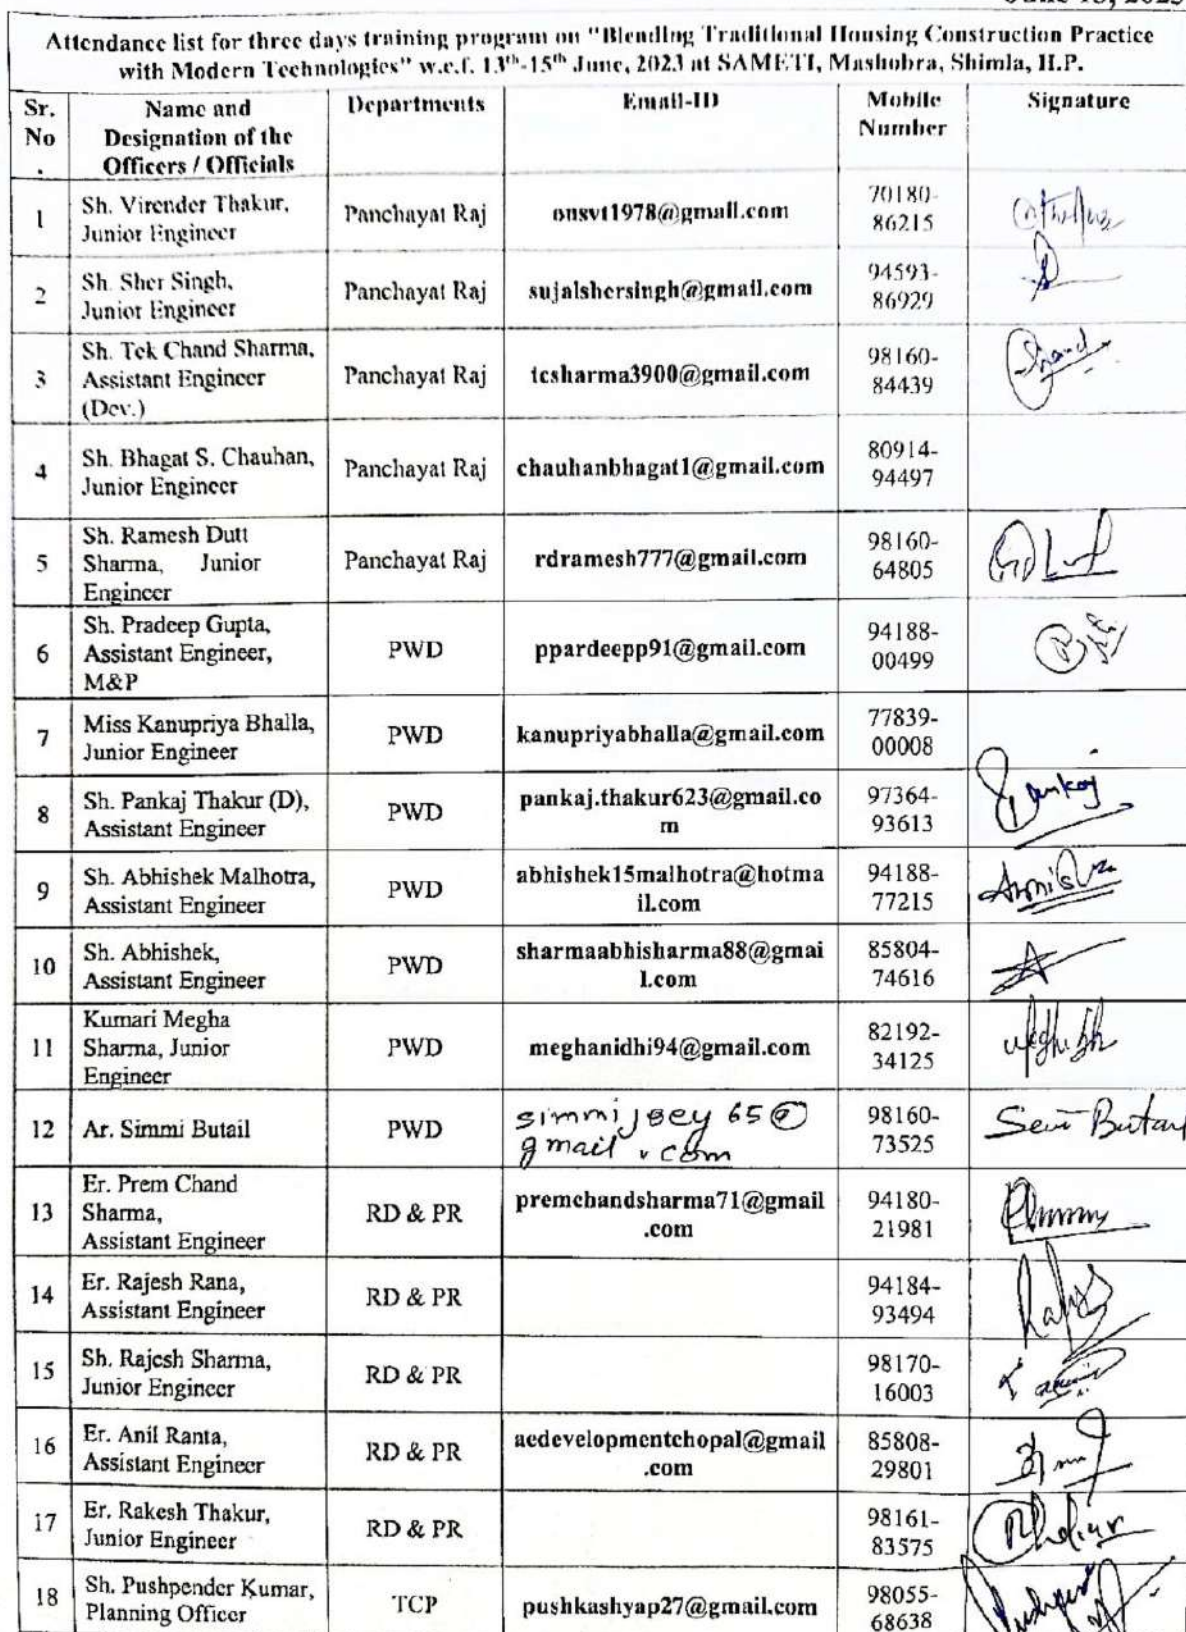 Attendance list for three days training program on "Blending Traditional Housing Construction Practice
with Modern Technologies" w.e.f. 13th-15th June, 2023 at SAMETI, Mashobra, Shimla, H.P.
Sr. No . Name and Designation of the Officers / Officials Departments Email-ID Mobile Number Signature
1 Sh. Virender Thakur, Junior Engineer Panchayat Raj onsvt1978@gmail.com 70180-86215
2 Sh. Sher Singh, Junior Engineer Panchayat Raj sujalshersingh@gmail.com 94593-86929
3 Sh. Tek Chand Sharma, Assistant Engineer (Dev.) Panchayat Raj tcsharma3900@gmail.com 98160-84439
4 Sh. Bhagat S. Chauhan, Junior Engineer Panchayat Raj chauhanbhagat1@gmail.com 80914-94497
5 Sh. Ramesh Dutt Sharma, Junior Engineer Panchayat Raj rdramesh777@gmail.com 98160-64805
6 Sh. Pradeep Gupta, Assistant Engineer, M&P PWD ppardeepp91@gmail.com 94188-00499
7 Miss Kanupriya Bhalla, Junior Engineer PWD kanupriyabhalla@gmail.com 77839-00008
8 Sh. Pankaj Thakur (D), Assistant Engineer PWD pankaj.thakur623@gmail.com 97364-93613 Pankaj
9 Sh. Abhishek Malhotra, Assistant Engineer PWD abhishek15malhotra@hotmail.com 94188-77215
10 Sh. Abhishek, Assistant Engineer PWD sharmaabhisharma88@gmail.com 85804-74616
11 Kumari Megha Sharma, Junior Engineer PWD meghanidhi94@gmail.com 82192-34125
12 Ar. Simmi Butail PWD simmijoey65@gmail.com 98160-73525
13 Er. Prem Chand Sharma, Assistant Engineer RD & PR premchandsharma71@gmail.com 94180-21981
14 Er. Rajesh Rana, Assistant Engineer RD & PR 94184-93494
15 Sh. Rajesh Sharma, Junior Engineer RD & PR 98170-16003
16 Er. Anil Ranta, Assistant Engineer RD & PR aedevelopmentchopal@gmail.com 85808-29801
17 Er. Rakesh Thakur, Junior Engineer RD & PR 98161-83575
18 Sh. Pushpender Kumar, Planning Officer TCP pushkashyap27@gmail.com 98055-68638